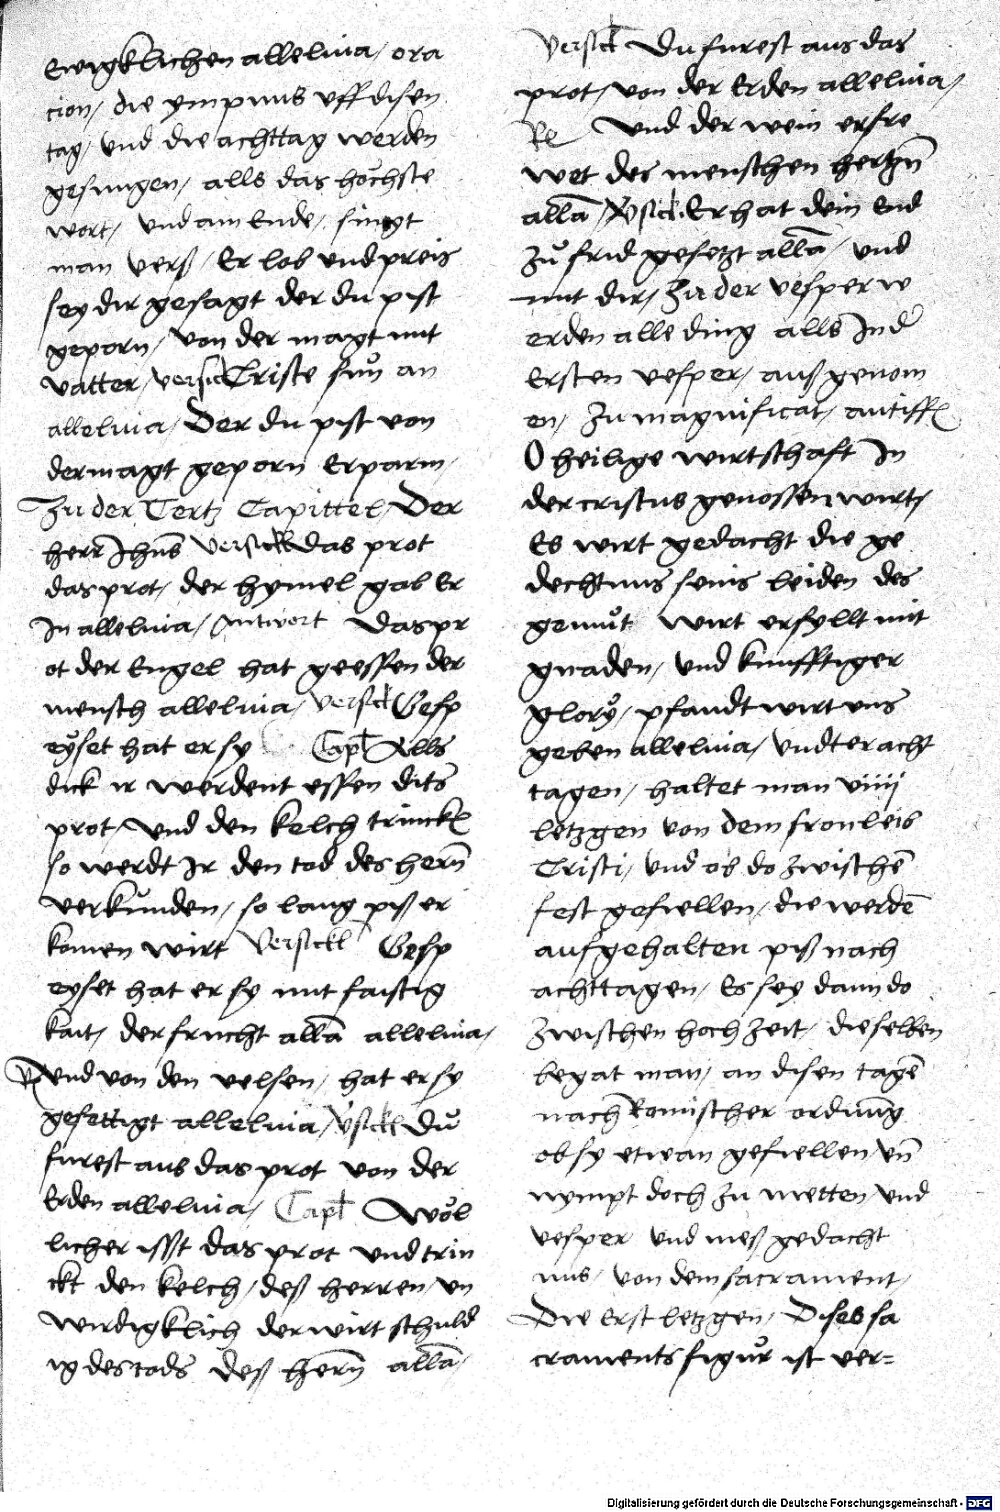 ewigklichen alleluia / ora
cion / die ympnus vff disen
tag / vnd die achttag werden
gesungen / alls das höchste
wort / vnd am Ende / singt
man verß / Er lob vnd preis
sey dir gesagt der du pist
geporn / von der magt mit
vatter / versick Criste sun an
allelvia / Der du pist von
dermagt geporn Erparm /
Zu der Tertz Capittel / Der
herr Jhus versickl das prot
das prot / der hymel gab Er
In allelvia / Antwort Das pr
ot der Engel hat geessen der
mensch allelvia / versickl Gesp
eyset hat er sy Capl Alls
dick ir werdent essen dits
prot / vnd den kelch trinckl
so werdt Ir den tod des hern
verkunden / so lang piß er
komen wirt versickl Gesp
eyset hat er sy mit faistig
kait / der frucht alla allelvia /
Rx vnd von den velsen / hat er sy
gesettigt allelvia / Vsickl du
furest aus das prot von der
Erden allelvia / Capl Wöl
licher isst das prot vnd trin
ckt den kelch / deß herren / vn
wirdigklich der wirt schuld
ig des tods deß hern alla /
versickl Du furest aus das
prot / von der Erden allelvia /
Re Vnd der wein erfre
wet des menschen hertzn
alla / Vsickl. Er hat dein End
zu frid gesetzt alla / vnd
mit dir / Zu der vesper w
erden alle ding alls In d
Ersten vesper / auß genom
en / Zu magnificat / antiff
O heilige wirtschaft In
der cristus genossen wirt /
Es wirt gedacht die ge
dechtnus seins leiden des
gemut wirt erfyllt mit
gnaden / vnd kunfftiger
glory / pfandt wirt vns
geben allelvia / Vndter acht
tagen / haltet man viiij
letzgen von dem fronleib
Cristi / vnd ob do zwische
fest gefiellen / die werde
auf gehalten piß nach
achttagen / Es sey dann do
zwischen hoch Zeit / die selben
begat man / an disen tage
nach Romischer ordnung
ob sy etwan gefiellen vn
nympt doch zu metten vnd
vesper vnd meß gedacht
nus / von dem sacrament /
Die Erst letzgen / Dises sa
craments figur ist ver=
Digitalisierung gefördert durch die Deutsche Forschungsgemeinschaft - DFG